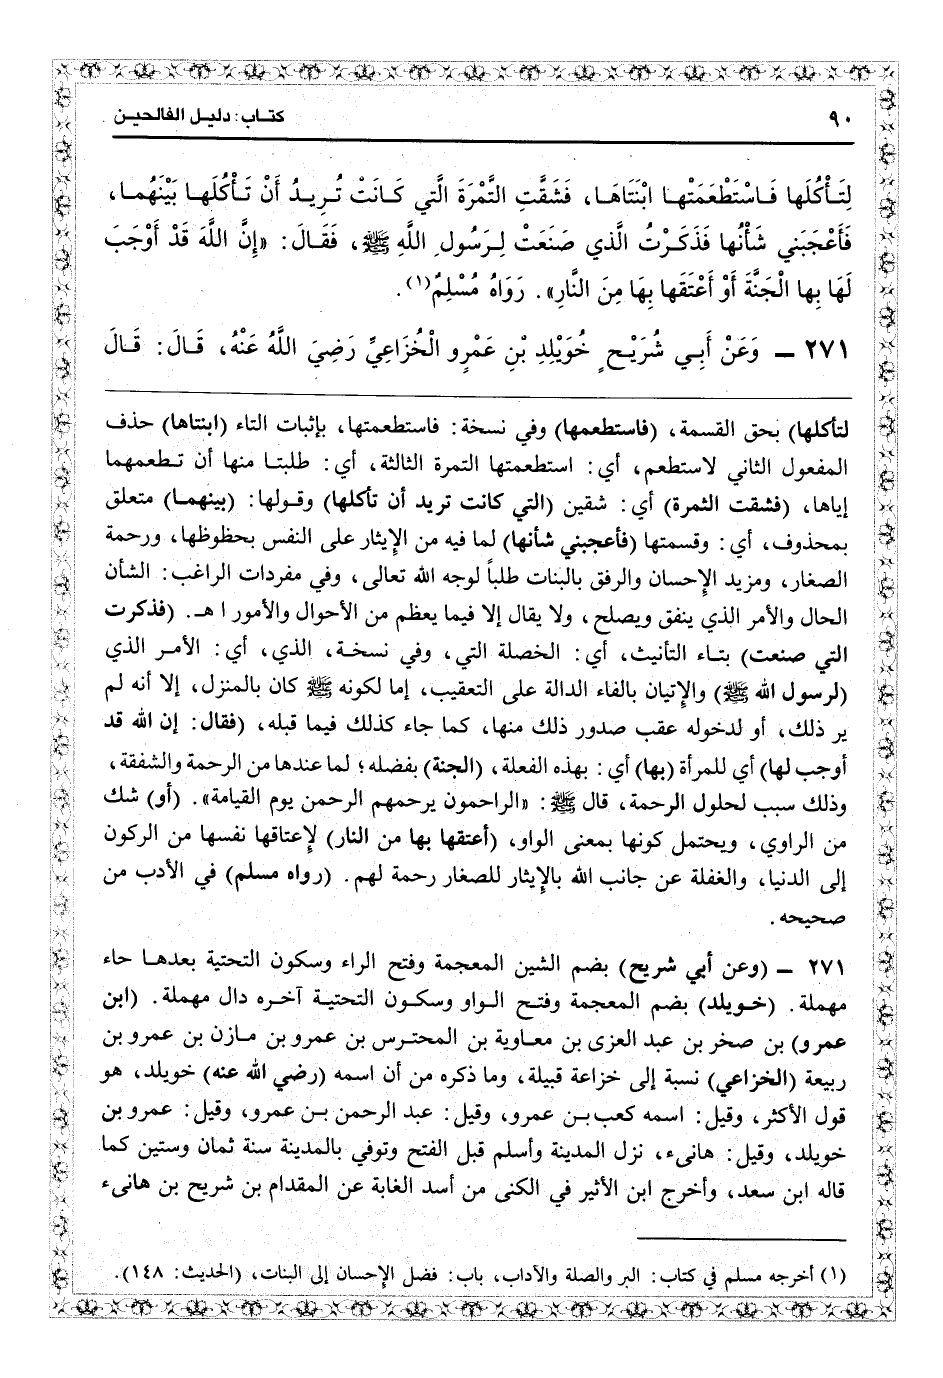 ٩٠ كتاب: دليل الفالحين
لِتَأْكُلَها فَاسْتَطْعَمَتْها ابْنَتَاهَا، فَشَقَّتِ التَّمْرَةَ الَّتي كَانَتْ تُرِيدُ أَنْ تَأْكُلَها بَيْنَهُما،
فَأَعْجَبَني شَأْنُها فَذَكَرْتُ الَّذي صَنَعَتْ لِرَسُولِ اللَّهِ ﷺ، فَقَالَ: «إِنَّ اللَّهَ قَدْ أَوْجَبَ
لَهَا بِها الْجَنَّةَ أَوْ أَعْتَقَها بِهَا مِنَ النَّارِ». رَوَاهُ مُسْلِمٌ(١).
٢٧١ ـ وَعَنْ أَبِي شُرَيْحٍ خُوَيْلِدِ بْنِ عَمْرٍو الْخُزَاعِيِّ رَضِيَ اللَّهُ عَنْهُ، قَالَ: قَالَ
لتأكلها) بحق القسمة، (فاستطعمها) وفي نسخة: فاستطعمتها، بإثبات التاء (ابنتاها) حذف
المفعول الثاني لاستطعم، أي: استطعمتها التمرة الثالثة، أي: طلبتا منها أن تطعمهما
إياها، (فشقت الثمرة) أي: شقين (التي كانت تريد أن تأكلها) وقولها: (بينهما) متعلق
بمحذوف، أي: وقسمتها (فأعجبني شأنها) لما فيه من الإيثار على النفس بحظوظها، ورحمة
الصغار، ومزيد الإحسان والرفق بالبنات طلباً لوجه الله تعالى، وفي مفردات الراغب: الشأن
الحال والأمر الذي ينفق ويصلح، ولا يقال إلا فيما يعظم من الأحوال والأمور ا هـ. (فذكرت
التي صنعت) بتاء التأنيث، أي: الخصلة التي، وفي نسخة، الذي، أي: الأمر الذي
(لرسول الله ﷺ) والإتيان بالفاء الدالة على التعقيب، إما لكونه ﷺ كان بالمنزل، إلا أنه لم
ير ذلك، أو لدخوله عقب صدور ذلك منها، كما جاء كذلك فيما قبله، (فقال: إن الله قد
أوجب لها) أي للمرأة (بها) أي: بهذه الفعلة، (الجنة) بفضله؛ لما عندها من الرحمة والشفقة،
وذلك سبب لحلول الرحمة، قال ﷺ: «الراحمون يرحمهم الرحمن يوم القيامة». (أو) شك
من الراوي، ويحتمل كونها بمعنى الواو، (أعتقها بها من النار) لإعتاقها نفسها من الركون
إلى الدنيا، والغفلة عن جانب الله بالإيثار للصغار رحمة لهم. (رواه مسلم) في الأدب من
صحيحه.
٢٧١ ـ (وعن أبي شريح) بضم الشين المعجمة وفتح الراء وسكون التحتية بعدها حاء
مهملة. (خويلد) بضم المعجمة وفتح الواو وسكون التحتية آخره دال مهملة. (ابن
عمرو) بن صخر بن عبد العزى بن معاوية بن المحترس بن عمرو بن مازن بن عمرو بن
ربيعة (الخزاعي) نسبة إلى خزاعة قبيلة، وما ذكره من أن اسمه (رضي الله عنه) خويلد، هو
قول الأكثر، وقيل: اسمه كعب بن عمرو، وقيل: عبد الرحمن بن عمرو، وقيل: عمرو بن
خويلد، وقيل: هانىء، نزل المدينة وأسلم قبل الفتح وتوفي بالمدينة سنة ثمان وستين كما
قاله ابن سعد، وأخرج ابن الأثير في الكنى من أسد الغابة عن المقدام بن شريح بن هانىء
(١) أخرجه مسلم في كتاب: البر والصلة والآداب، باب: فضل الإحسان إلى البنات، (الحديث: ١٤٨).